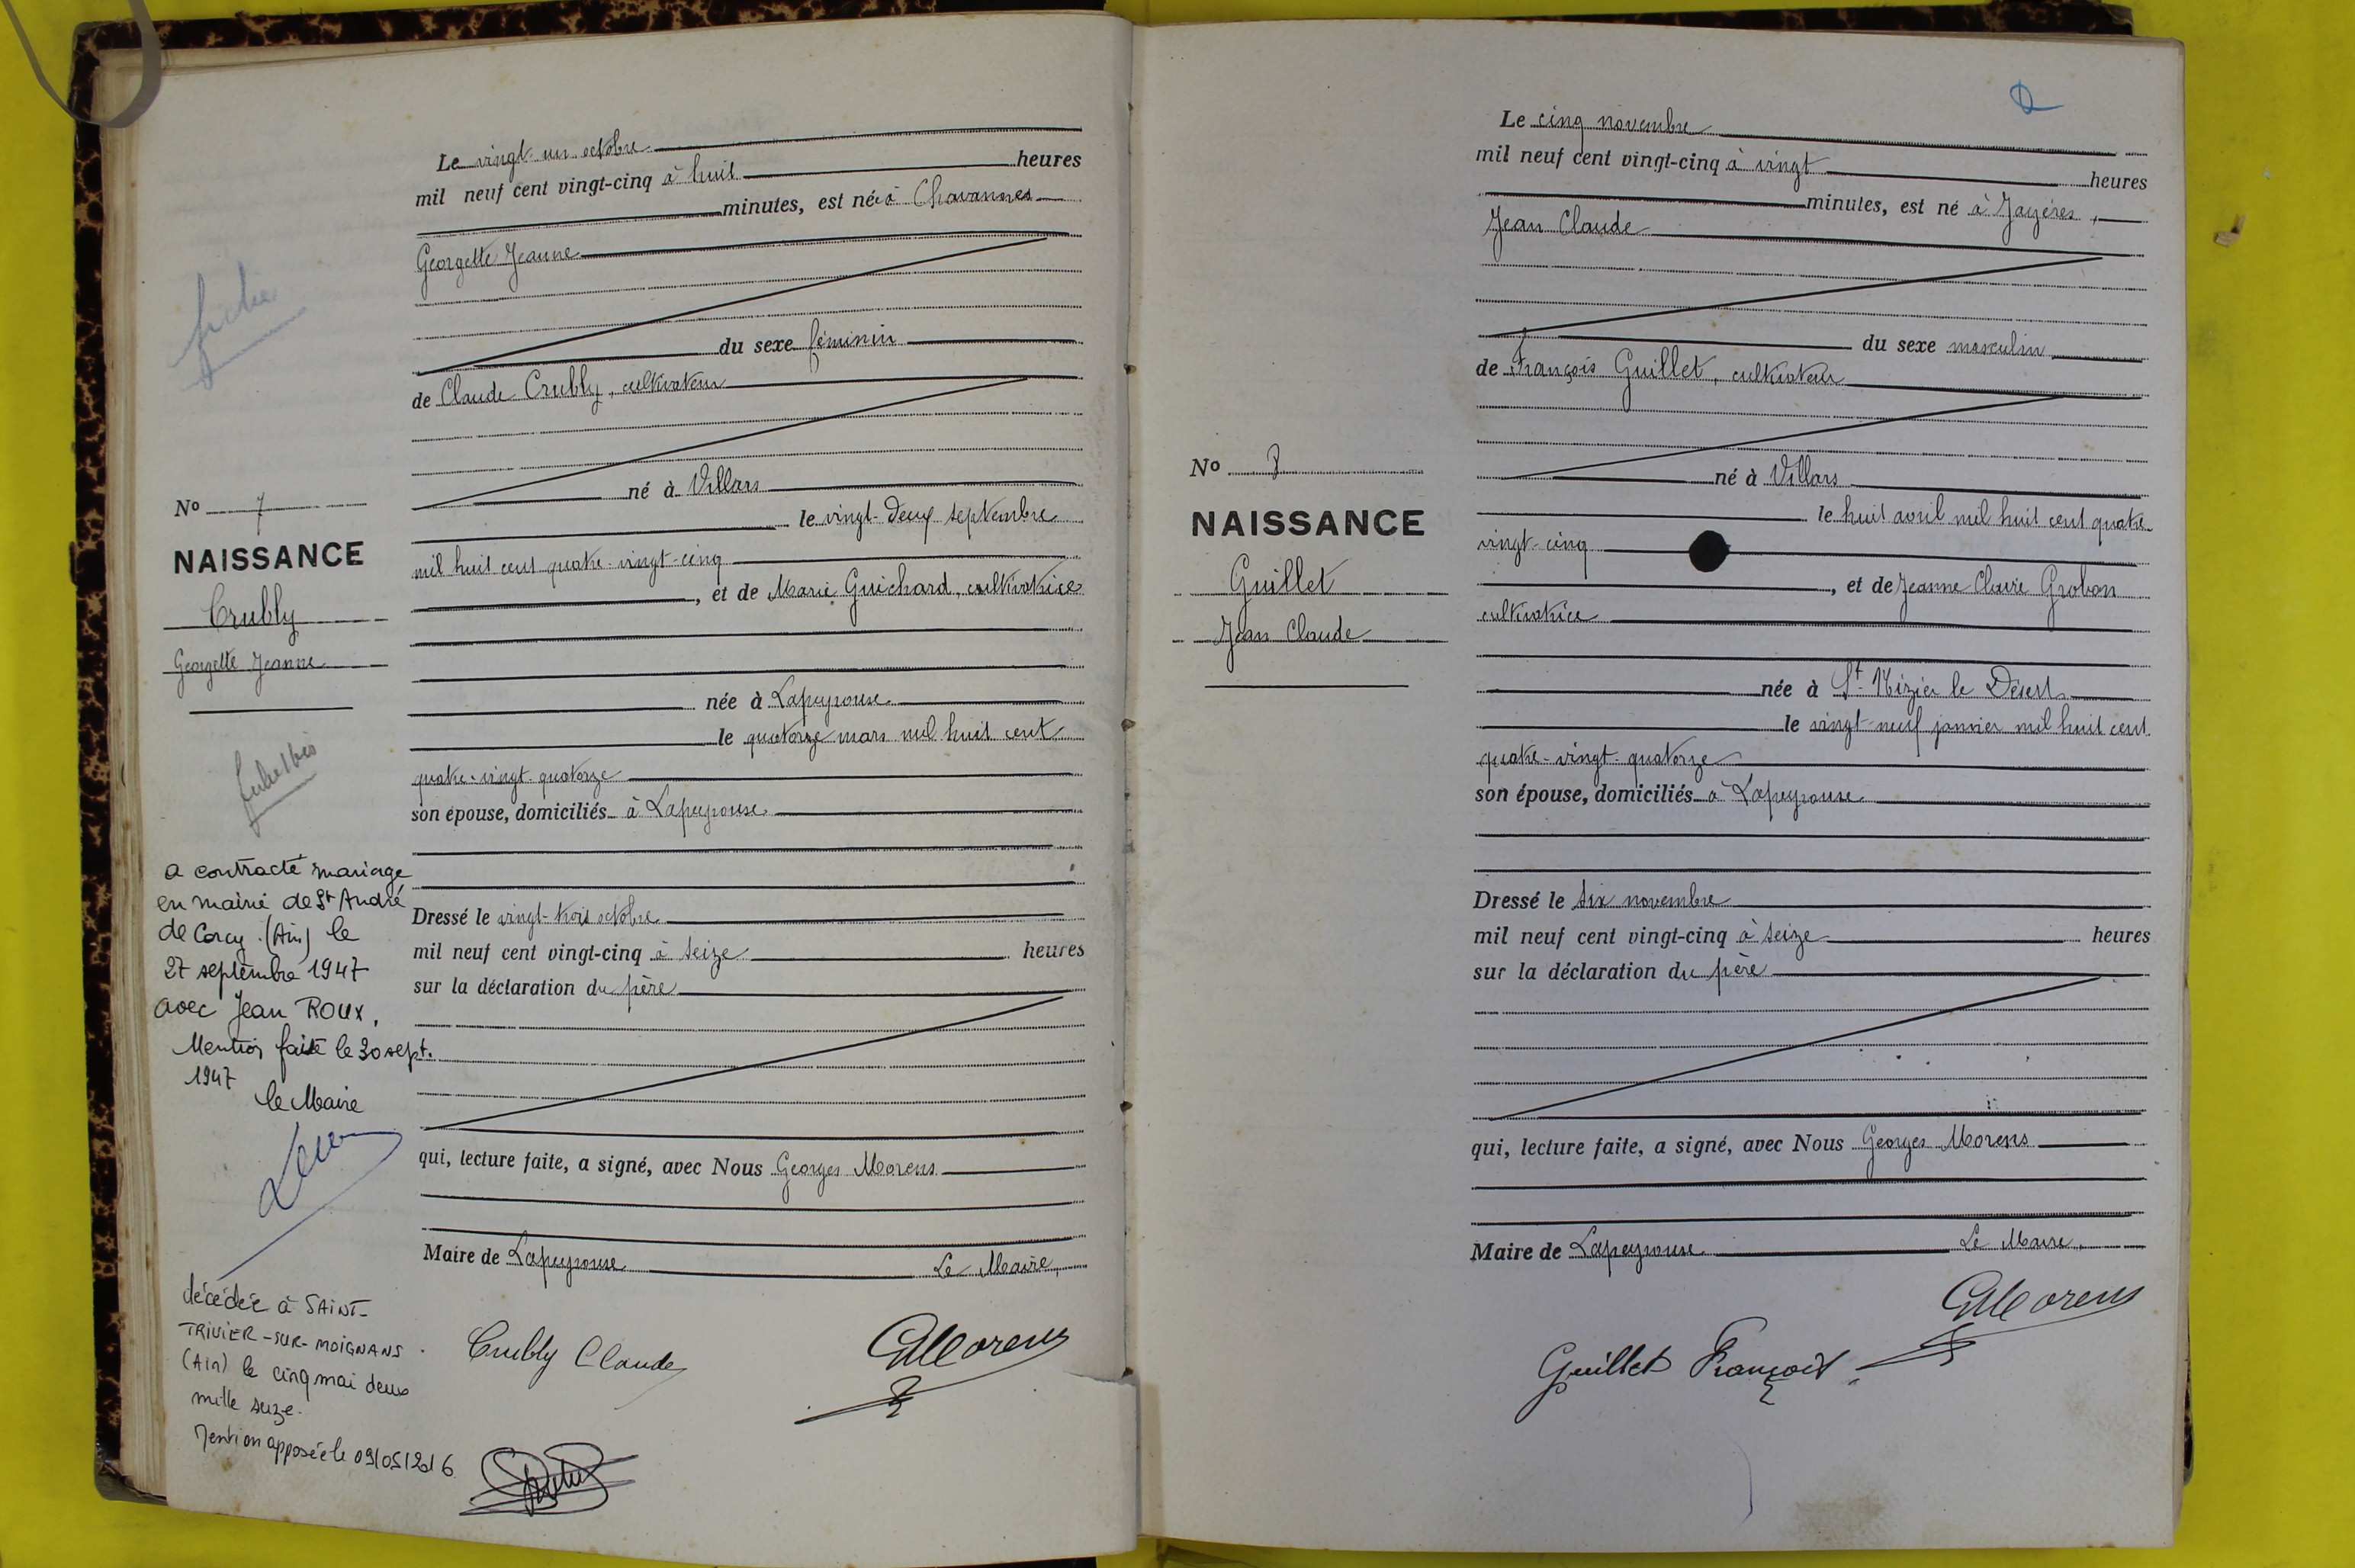 Le vingt-un octobre
mil neuf cent vingt-cinq à huit heures
minutes, est née à Chavannes
Georgette Jeanne
du sexe féminin
de Claude Crubly, cultivateur
né à Villars
le vingt-deux septembre
mil huit cent quatre-vingt-cinq
, et de Marie Guichard, cultivatrice
née à Lapeyrouse
le quatorze mars mil huit cent
quatre-vingt-quatorze
son épouse, domiciliés à Lapeyrouse
Dressé le vingt-trois octobre
mil neuf cent vingt-cinq à seize heures
sur la déclaration du père
qui, lecture faite, a signé, avec Nous Georges Morens
Maire de Lapeyrouse Le Maire,
Crubly Claude GMorens
fiche
No 7
NAISSANCE
Crubly
Georgette Jeanne
a contracté mariage
en mairie de St André
de Corcy (Ain) le
27 septembre 1947
avec Jean ROUX.
Mention faite le 30 sept.
1947
le Maire
décédée à SAINT-
TRIVIER-SUR-MOIGNANS
(Ain) le cinq mai deux
mille seize.
Mention apposée le 09/05/2016
Le cinq novembre
mil neuf cent vingt-cinq à vingt heures
minutes, est né à Jayères,
Jean Claude
du sexe masculin
de François Guillet, cultivateur
né à Villars
le huit avril mil huit cent quatre-
vingt-cinq
, et de Jeanne Claire Grobon
cultivatrice
née à St Nizier le Désert
le vingt-neuf janvier mil huit cent
quatre-vingt-quatorze
son épouse, domiciliés à Lapeyrouse
Dressé le six novembre
mil neuf cent vingt-cinq à seize heures
sur la déclaration du père
qui, lecture faite, a signé, avec Nous Georges Morens
Maire de Lapeyrouse Le Maire,
GMorens
Guillet François
No 8
NAISSANCE
Guillet
Jean Claude